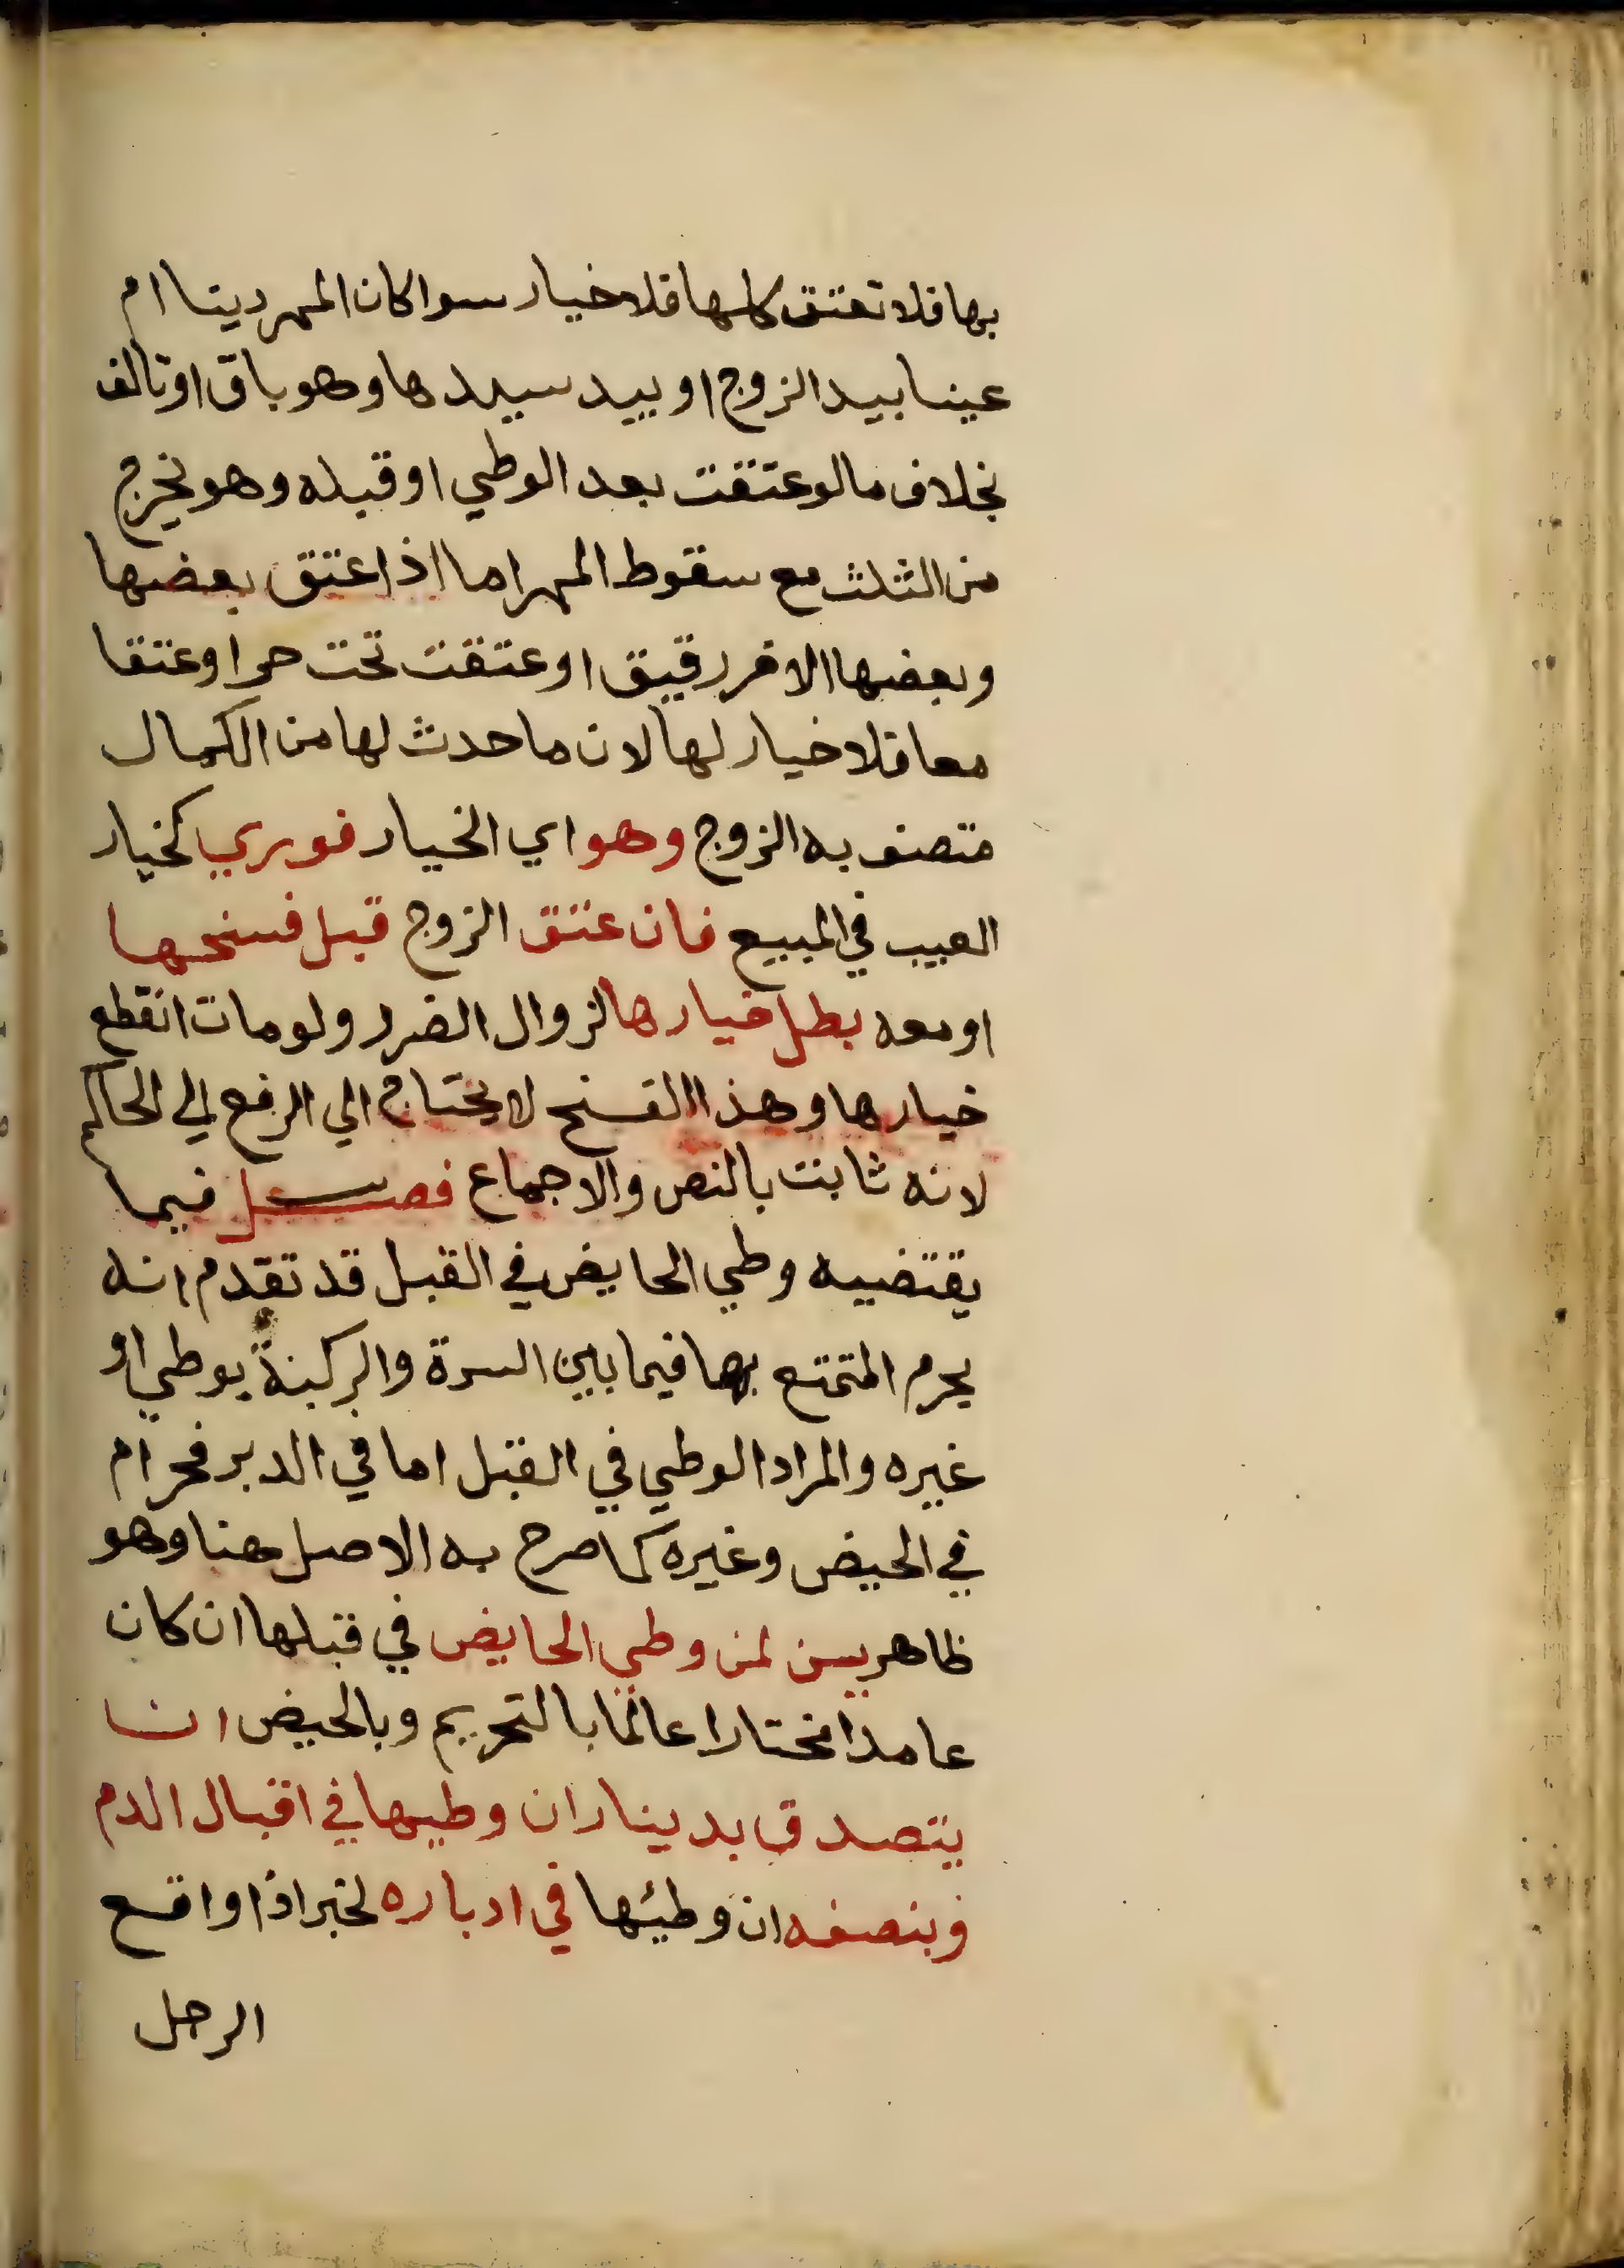 بها فلا تعتق كلها فلا خيار سوا كان المهر دينا ام
عينا بيد الزوج او بيد سيدها وهو باق او تالف
بخلاف ما لو عتقت بعد الوطي او قبله وهو يخرج
من الثلث مع سقوط المهر اما اذا عتق بعضها
وبعضها الاخر رقيق او عتقت تحت حر او عتقا
معا فلا خيار لها لان ما حدث لها من الكمال
متصف به الزوج وهو اي الخيار فوري كخيار
العيب في المبيع فان عتق الزوج قبل فسخها
او معه بطل خيارها لزوال الضرر ولو مات انقطع
خيارها وهذا الفسخ لا يحتاج الي الرفع الي الحاكم
لانه ثابت بالنص والاجماع فصل فيما
يقتضيه وطي الحايض في القبل قد تقدم انه
يحرم التمتع بها فيما بين السرة والركبة بوطي او
غيره والمراد الوطي في القبل اما في الدبر فحرام
في الحيض وغيره كما صرح به الاصل هنا وهو
ظاهر يسن لمن وطي الحايض في قبلها ان كان
عامدا مختارا عالما بالتحريم وبالحيض ان
يتصدق بدينار ان وطيها في اقبال الدم
وبنصفه ان وطئها في ادباره لخبر اذا واقع
الرجل